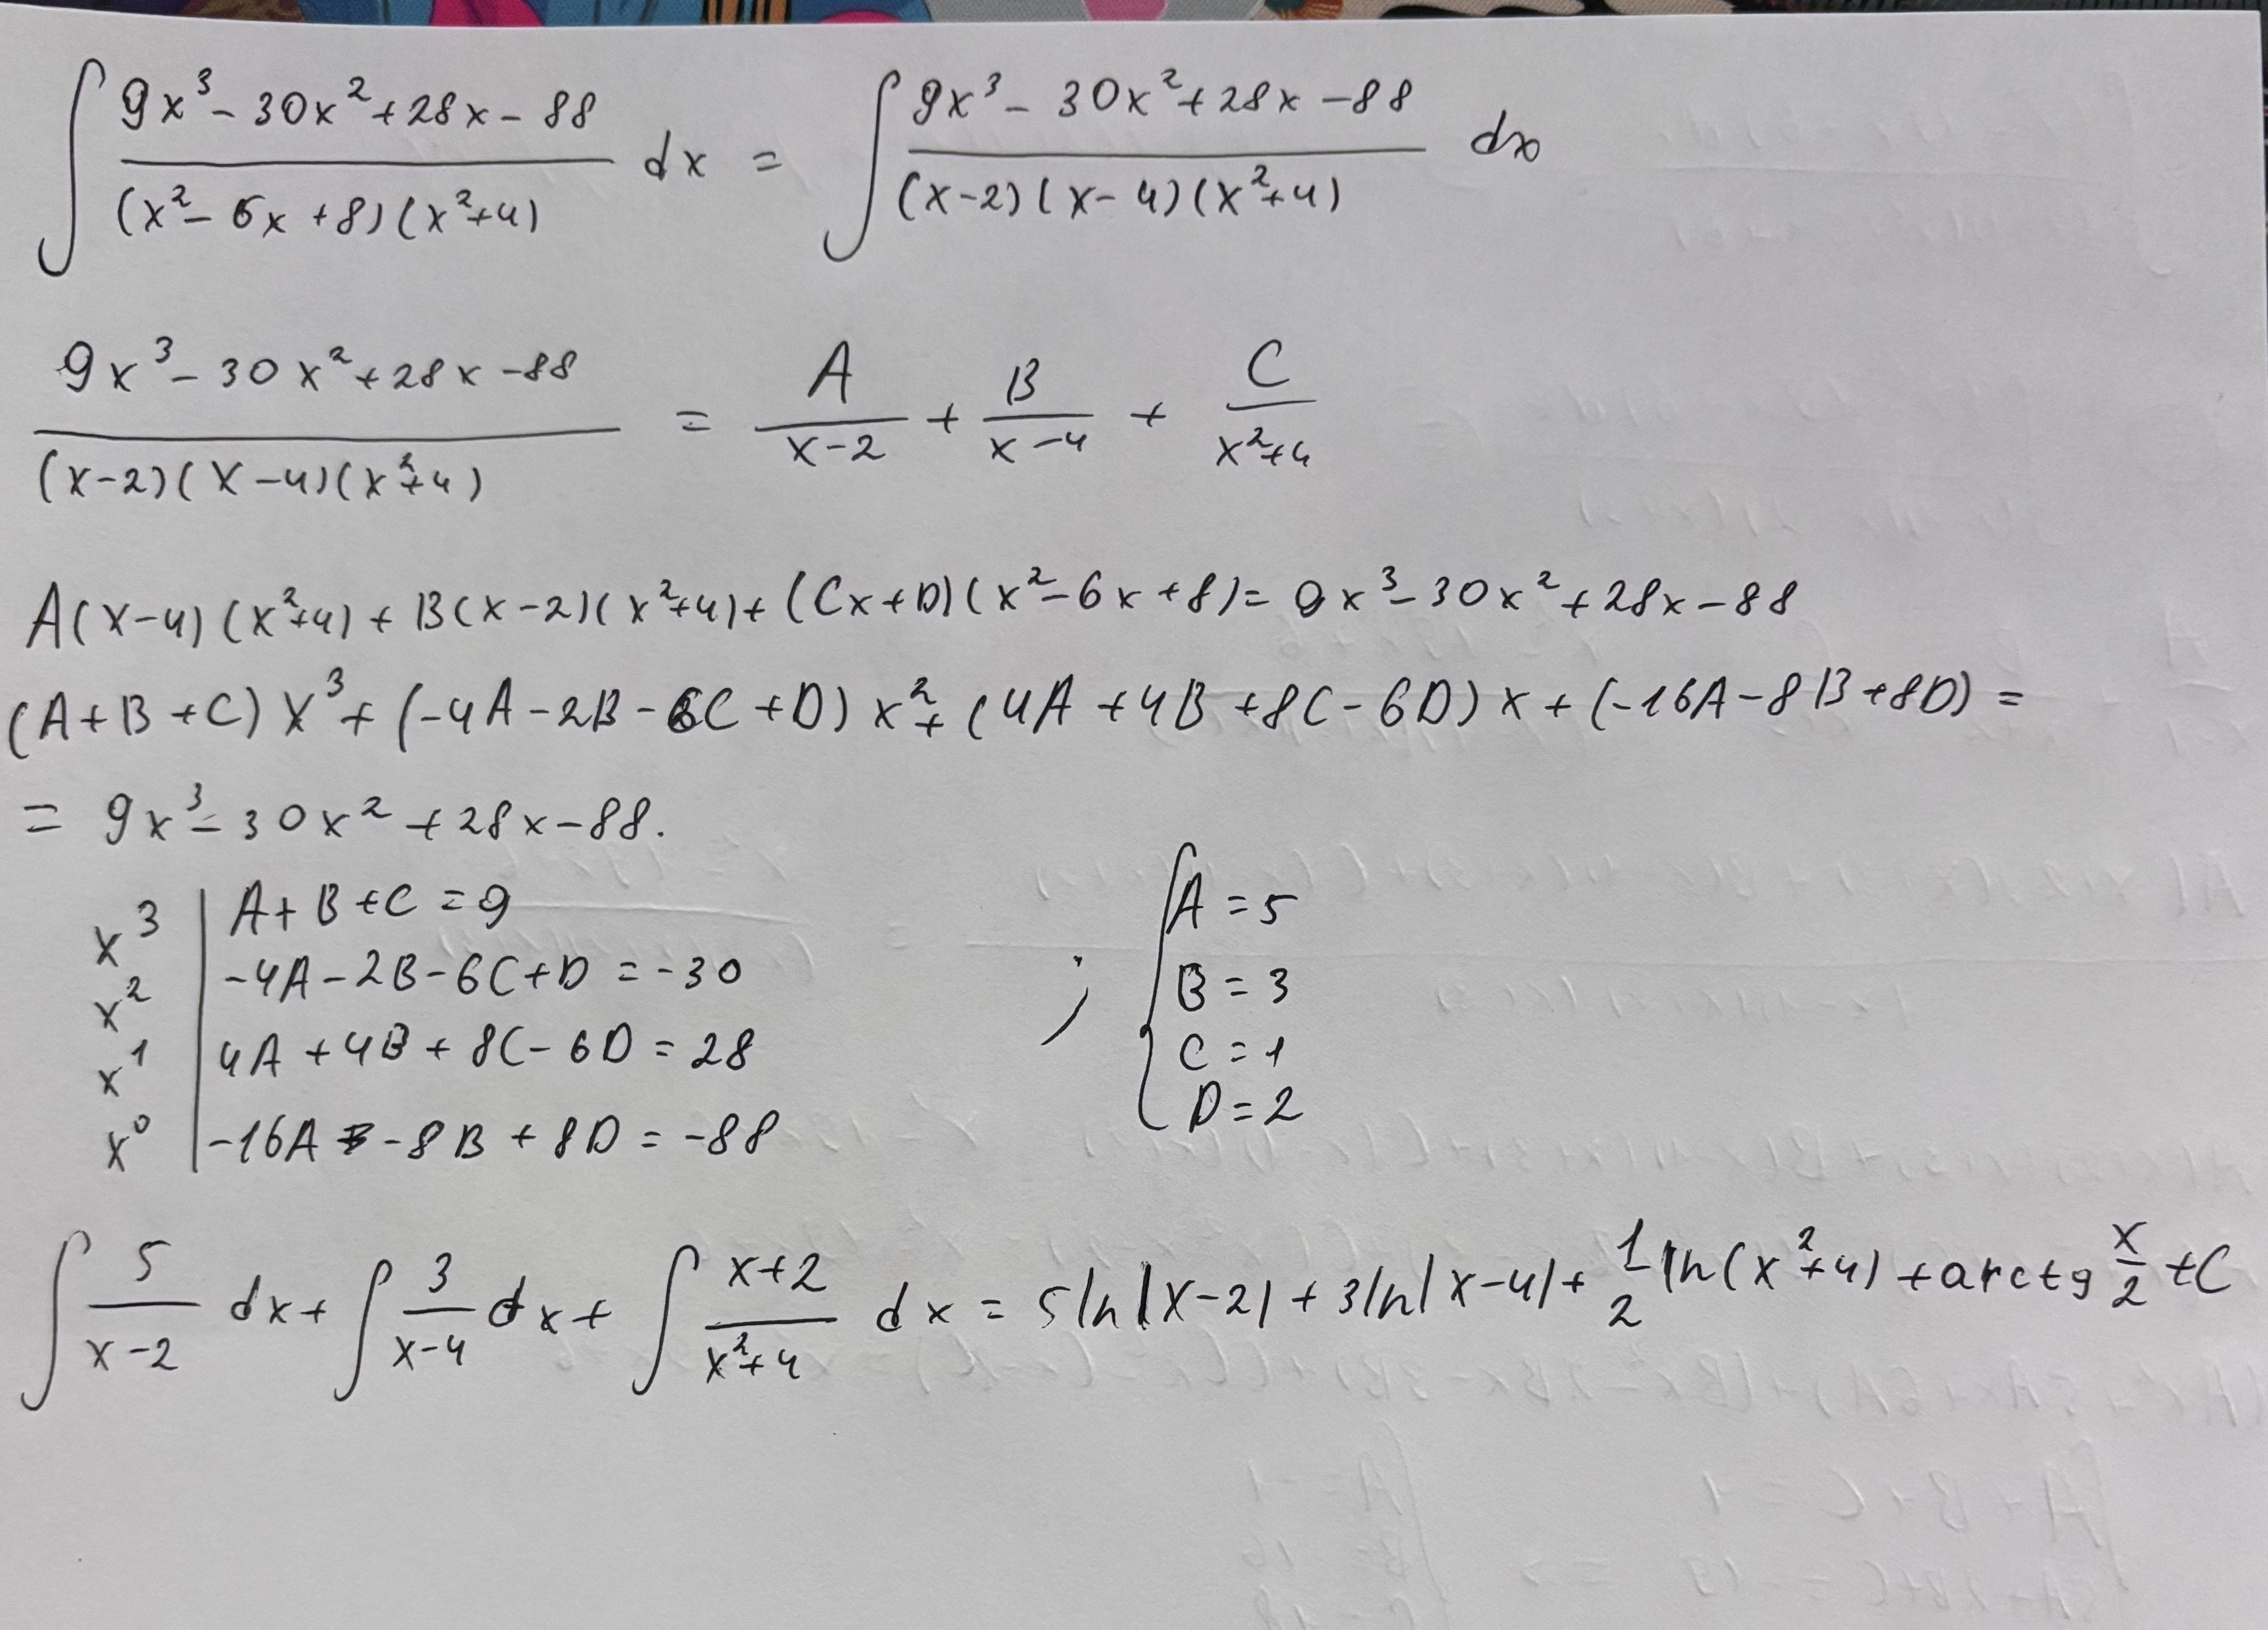 ∫ (9x³ - 30x² + 28x - 88)/((x² - 6x + 8)(x² + 4)) dx = ∫ (9x³ - 30x² + 28x - 88)/((x-2)(x-4)(x²+4)) dx
(9x³ - 30x² + 28x - 88)/((x-2)(x-4)(x²+4)) = A/(x-2) + B/(x-4) + C/(x²+4)
A(x-4)(x²+4) + B(x-2)(x²+4) + (Cx+D)(x²-6x+8) = 9x³ - 30x² + 28x - 88
(A+B+C)x³ + (-4A-2B-6C+D)x² + (4A+4B+8C-6D)x + (-16A-8B+8D) =
= 9x³ - 30x² + 28x - 88.
x³ | A+B+C = 9 ; { A = 5
x² | -4A-2B-6C+D = -30 B = 3
x¹ | 4A+4B+8C-6D = 28 C = 1
x⁰ | -16A-8B+8D = -88 D = 2
∫ 5/(x-2) dx + ∫ 3/(x-4) dx + ∫ (x+2)/(x²+4) dx = 5ln|x-2| + 3ln|x-4| + 1/2 ln(x²+4) + arctg x/2 + C